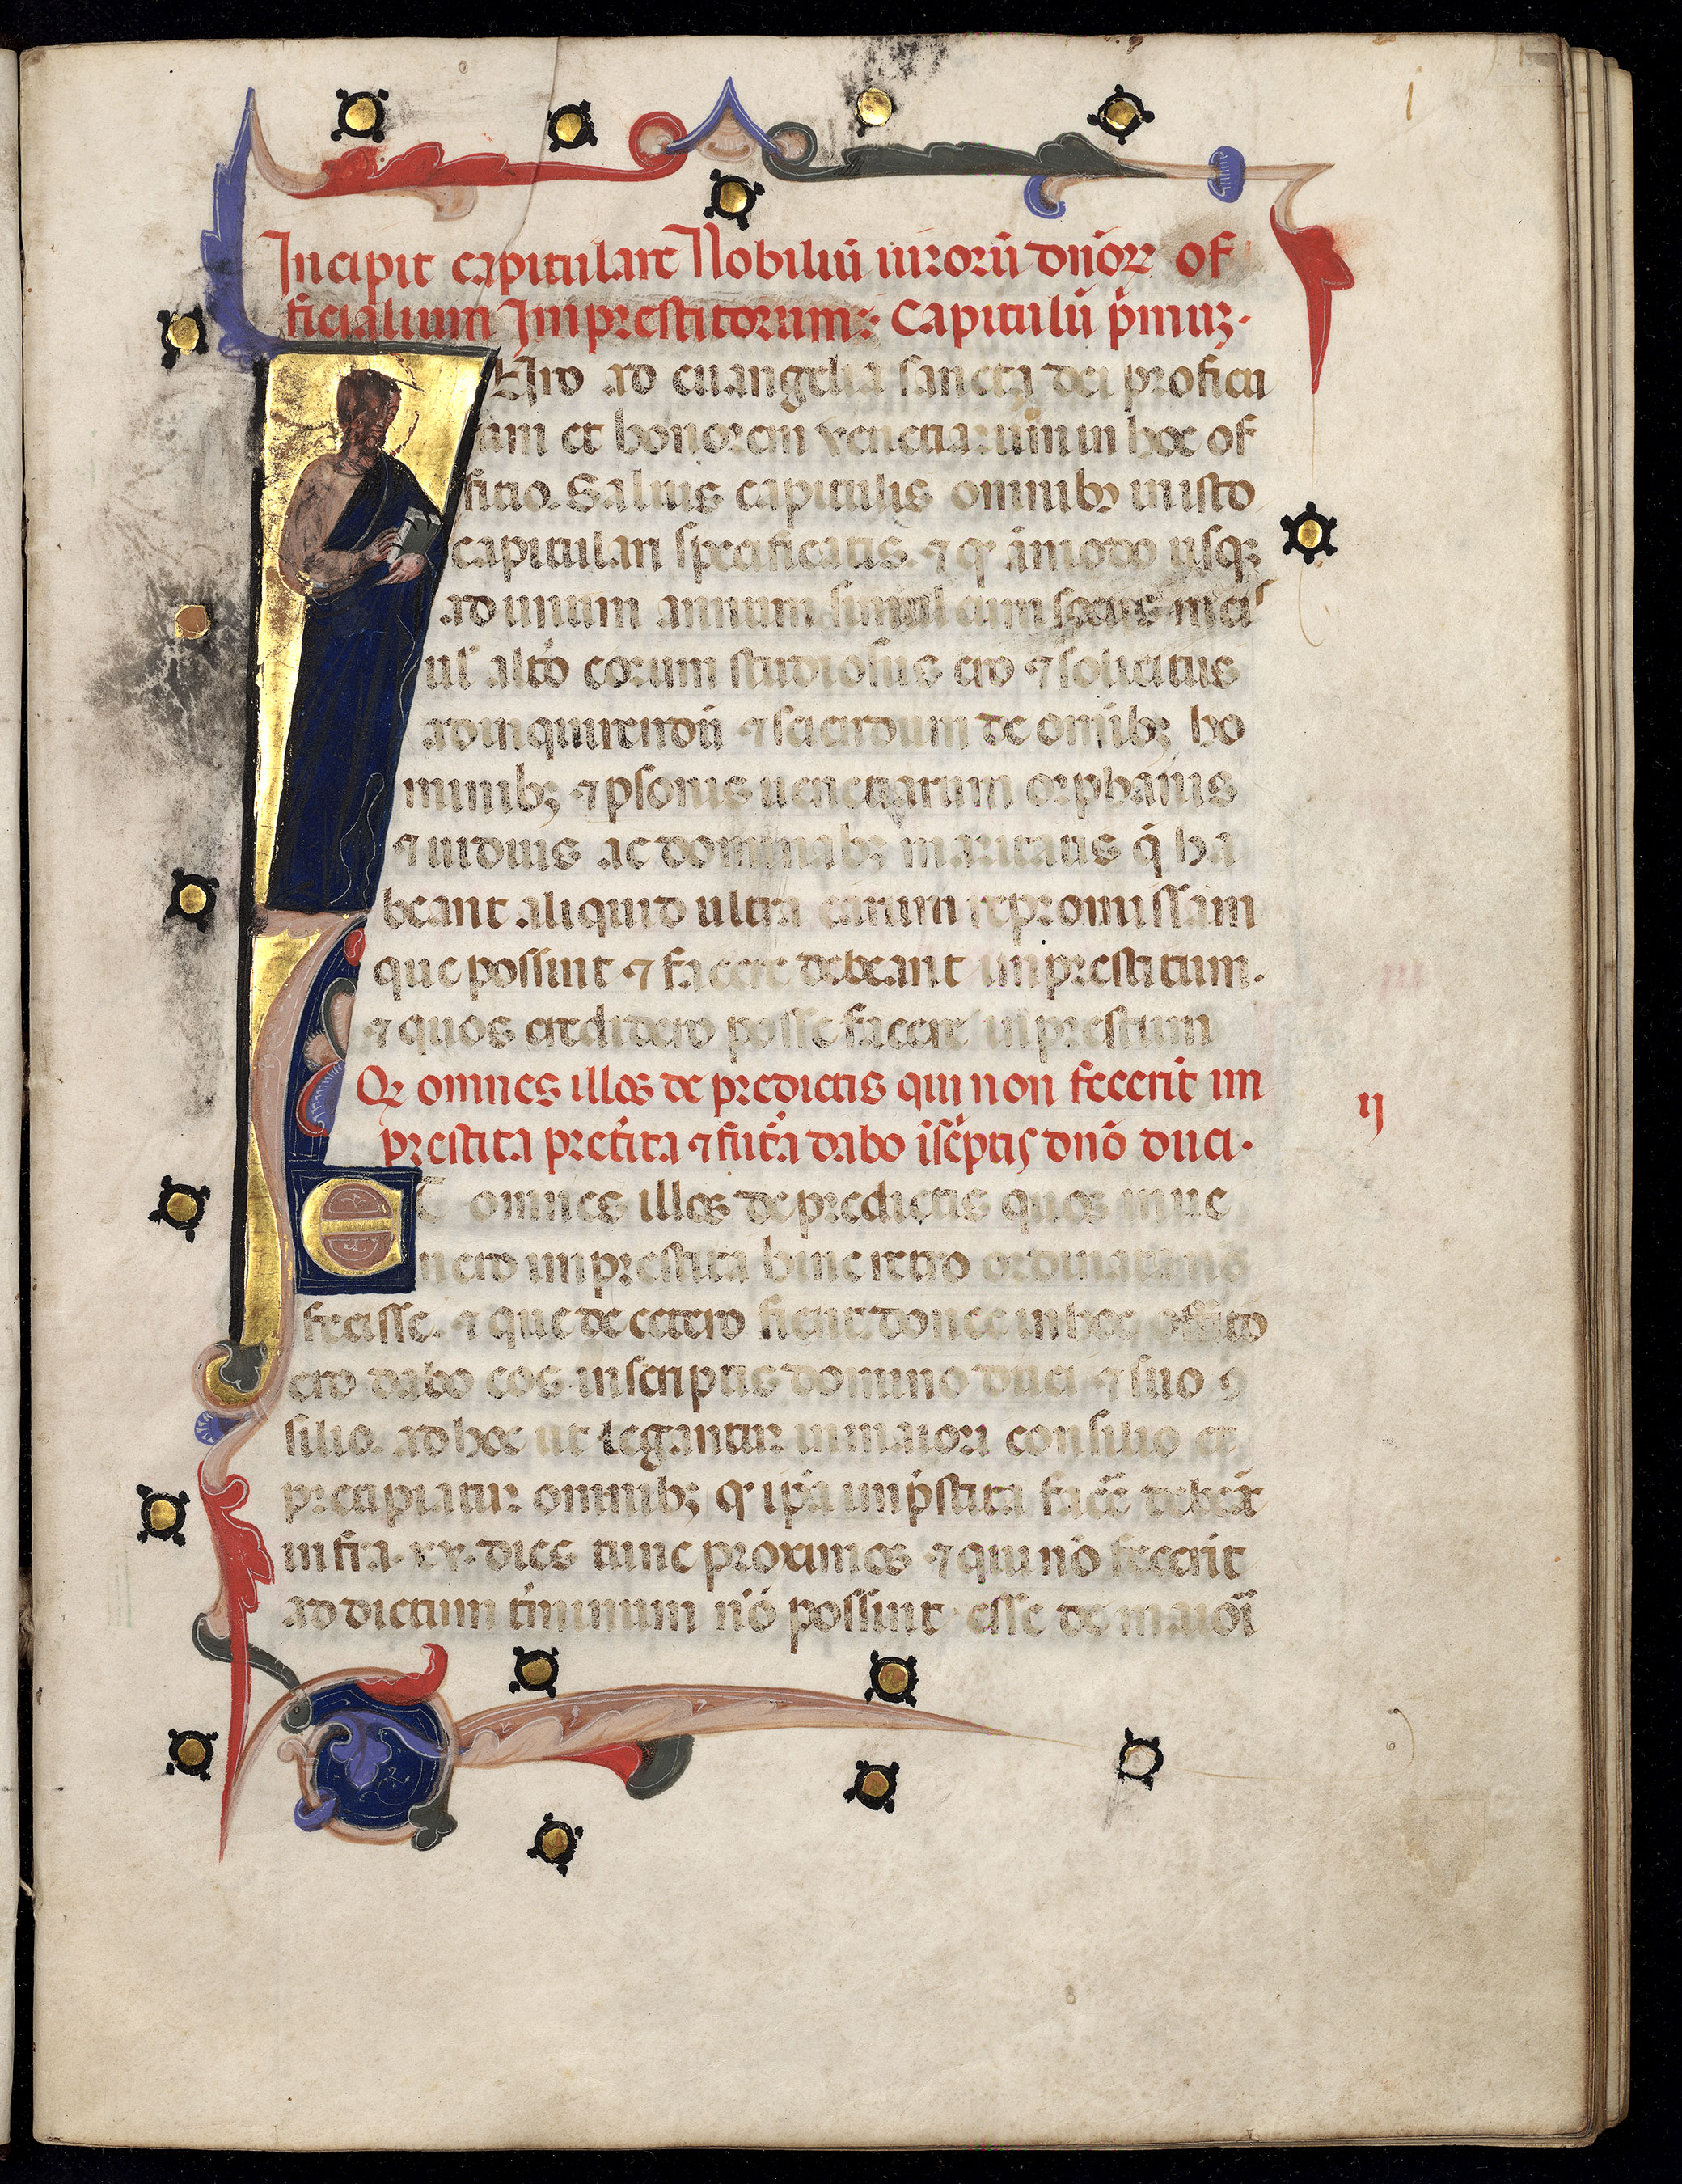 Incipit capitulare Nobiliū uirorū dn̄oꝝ of
ficialium Imprestitorum: Capitulū p̄muꝫ.
Iuro ad euangelia sancta dei proficu
um et honorem venetiarum in hoc of
fitio. Saluis capitulis omnibꝫ in isto
capitulari specificatis. ⁊ ꝙ āmodo usqꝫ
ad unum annum simul cum sociis meis
uł alt̓o eorum studiosus ero ⁊ solicitus
ad inquirendū ⁊ sciendum de omībꝫ ho
minibꝫ ⁊ psonis uenetiarum orphanis
⁊ uiduis ac dominabꝫ maritatis q̄ ha
beant aliquid ultra earum repromissam
que possint ⁊ facere debeant imprestitum.
⁊ quos credidero posse facere imprestitum
Qꝛ omnes illos de predictis qui non fecerīt im
prestita pret̓ita ⁊ fut̓a dabo īsc̓ptis dnō duci.
ij
Et omnes illos de predictis quos inue
nero imprestita hinc retro ordinata nō
fecisse. ⁊ que de cetero fient donec in hoc offitio
ero dabo eos inscriptis domino duci ⁊ suo ꝯ
silio. ad hoc ut legantur in maiori consilio et
precipiatur omnibꝫ ꝙ ip̄a imp̄stita facē debeāt
infra .xx. dies tunc proximos ⁊ qui nō fecerīt
ad dictum t̓minum nō possint esse de maiōi